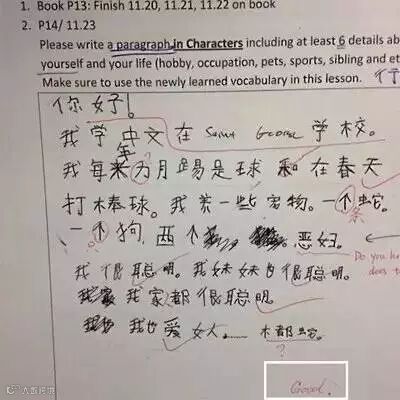 1. Book P13: Finish 11.20, 11.21, 11.22 on book
2. P14/ 11.23
Please write a paragraph in Characters including at least 6 details ab
yourself and your life (hobby, occupation, pets, sports, sibling and et
Make sure to use the newly learned vocabulary in this lesson.
你好!
我学中文在 Saint George 学校。
我每年 六月踢足球和在春天
打棒球。我养一些宠物。一个蛇
条
一个狗 两个 恶妇。
我很聪明。我妹妹也很聪明。
Do you ha
does t
我家都很聪明。
我也爱女人…… 木都蛇。
?
Good.
大数跨境